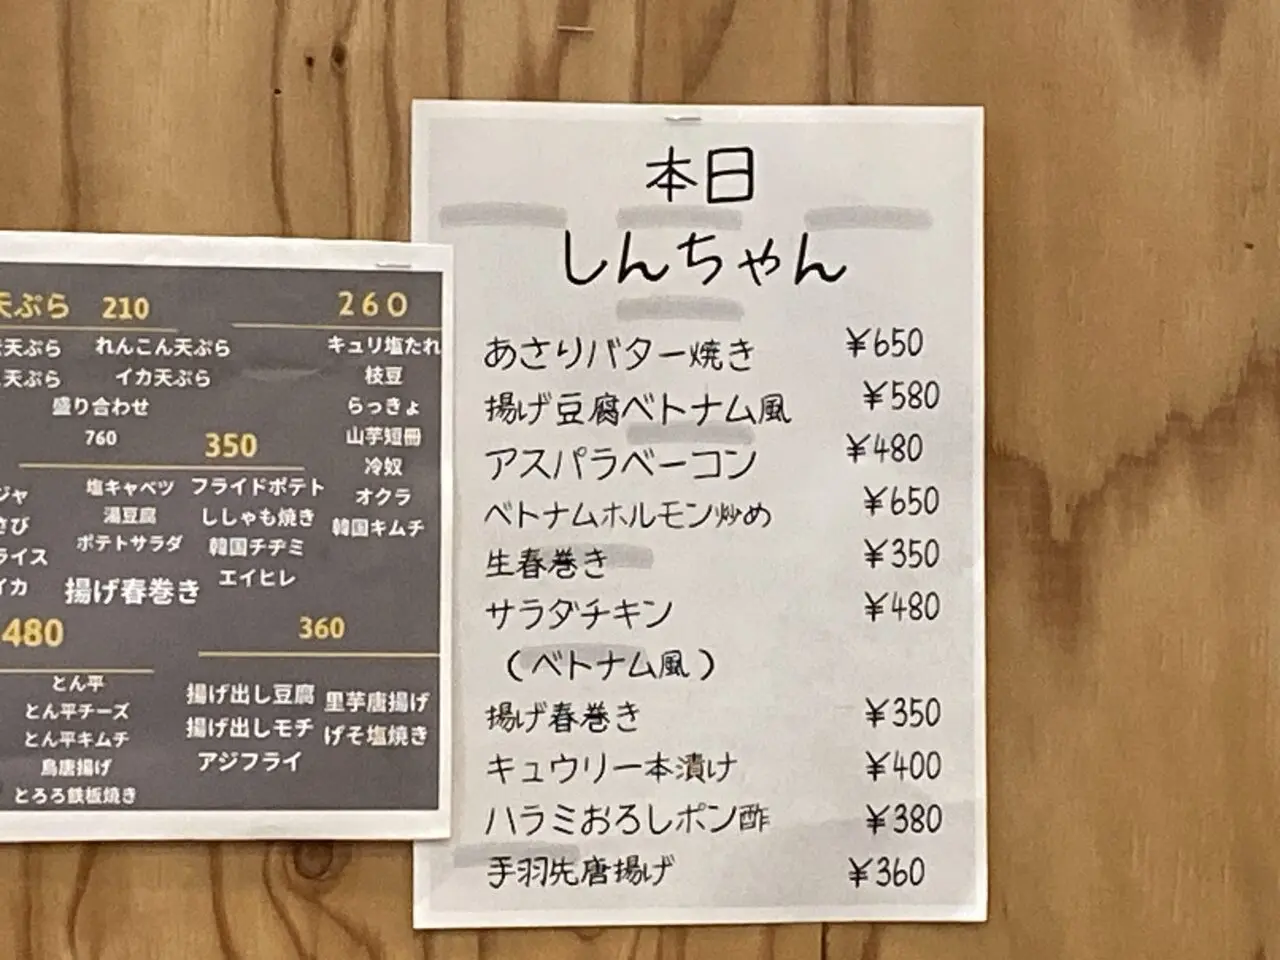 天ぷら 210
天ぷら れんこん天ぷら
天ぷら イカ天ぷら
盛り合わせ
760
260
キュリ塩たれ
枝豆
らっきょ
山芋短冊
冷奴
オクラ
韓国キムチ
350
塩キャベツ フライドポテト
湯豆腐 ししゃも焼き
ポテトサラダ 韓国チヂミ
揚げ春巻き エイヒレ
ライス
イカ
480
とん平
とん平チーズ
とん平キムチ
鳥唐揚げ
とろろ鉄板焼き
360
揚げ出し豆腐 里芋唐揚げ
揚げ出しモチ げそ塩焼き
アジフライ
本日
しんちゃん
あさりバター焼き ¥650
揚げ豆腐ベトナム風 ¥580
アスパラベーコン ¥480
ベトナムホルモン炒め ¥650
生春巻き ¥350
サラダチキン ¥480
(ベトナム風)
揚げ春巻き ¥350
キュウリ一本漬け ¥400
ハラミおろしポン酢 ¥380
手羽先唐揚げ ¥360